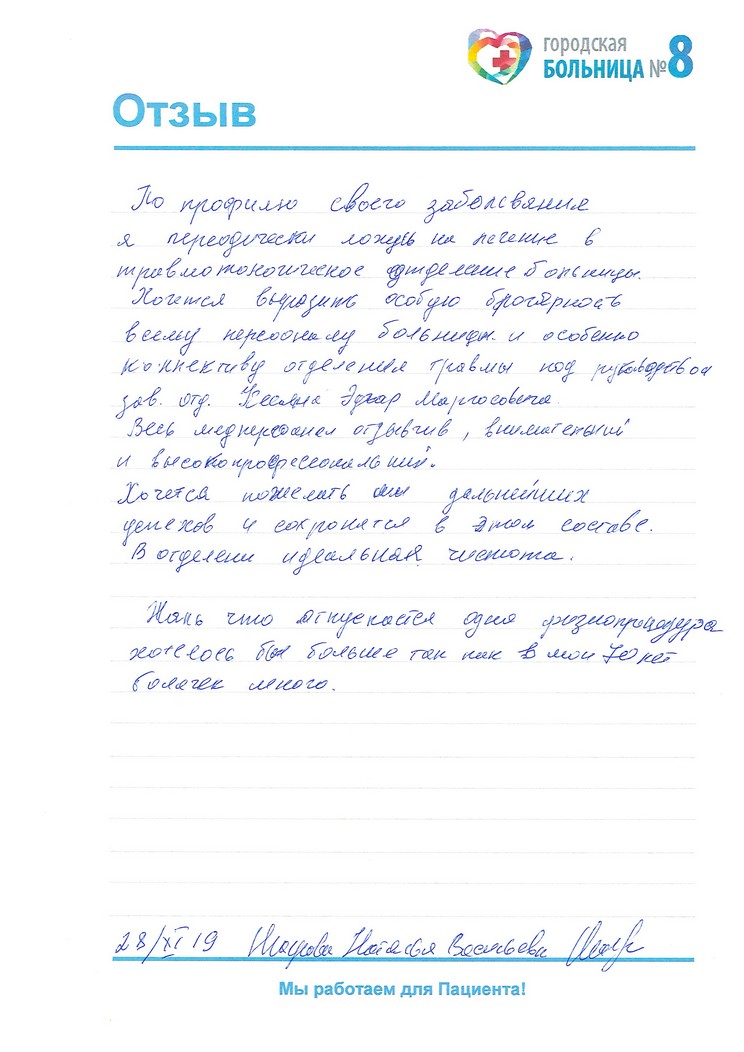 городская
БОЛЬНИЦА №8
Отзыв
По профилю своего заболевания
я переодически ложусь на лечение в
травмотологическое отделение больницы.
Хочется выразить особую
всему персоналу больницы и особенно
коллективу отделения травмы под руководством
зав. отд. Эдгар Маргосовича
Весь медперсонал отзывчив, внимательный
и высокопрофессиональний.
Хочется пожелать им дальнейших
успехов и сохранятся в этом составе.
В отделени идеальная чистота.
Жаль что отпускается одна физиопроцедура
хотелось бы больше так как в мои 70 лет
болячек много.
28/XI 19 Наталья Васильевна
Мы работаем для Пациента!